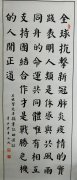 全球抗擊新冠肺炎疫情的實
踐表明人類是休戚與共風雨
同舟的命運共同體唯有相互
支持團結合作才是戰勝危機
的人間正道